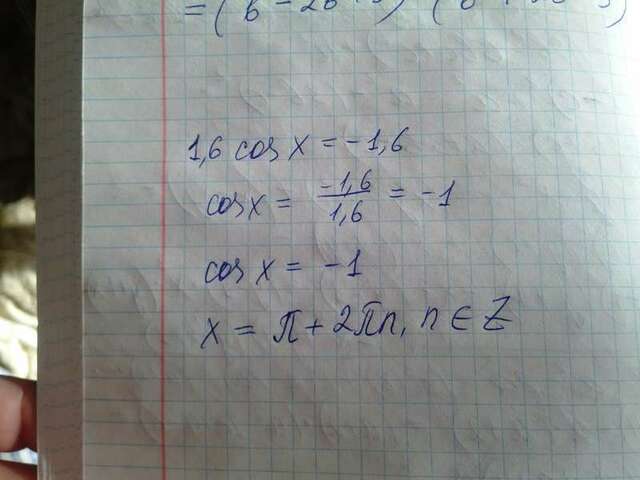 1,6 cos x = -1,6
cos x = -1,6/1,6 = -1
cos x = -1
x = π + 2πn, n ∈ Z